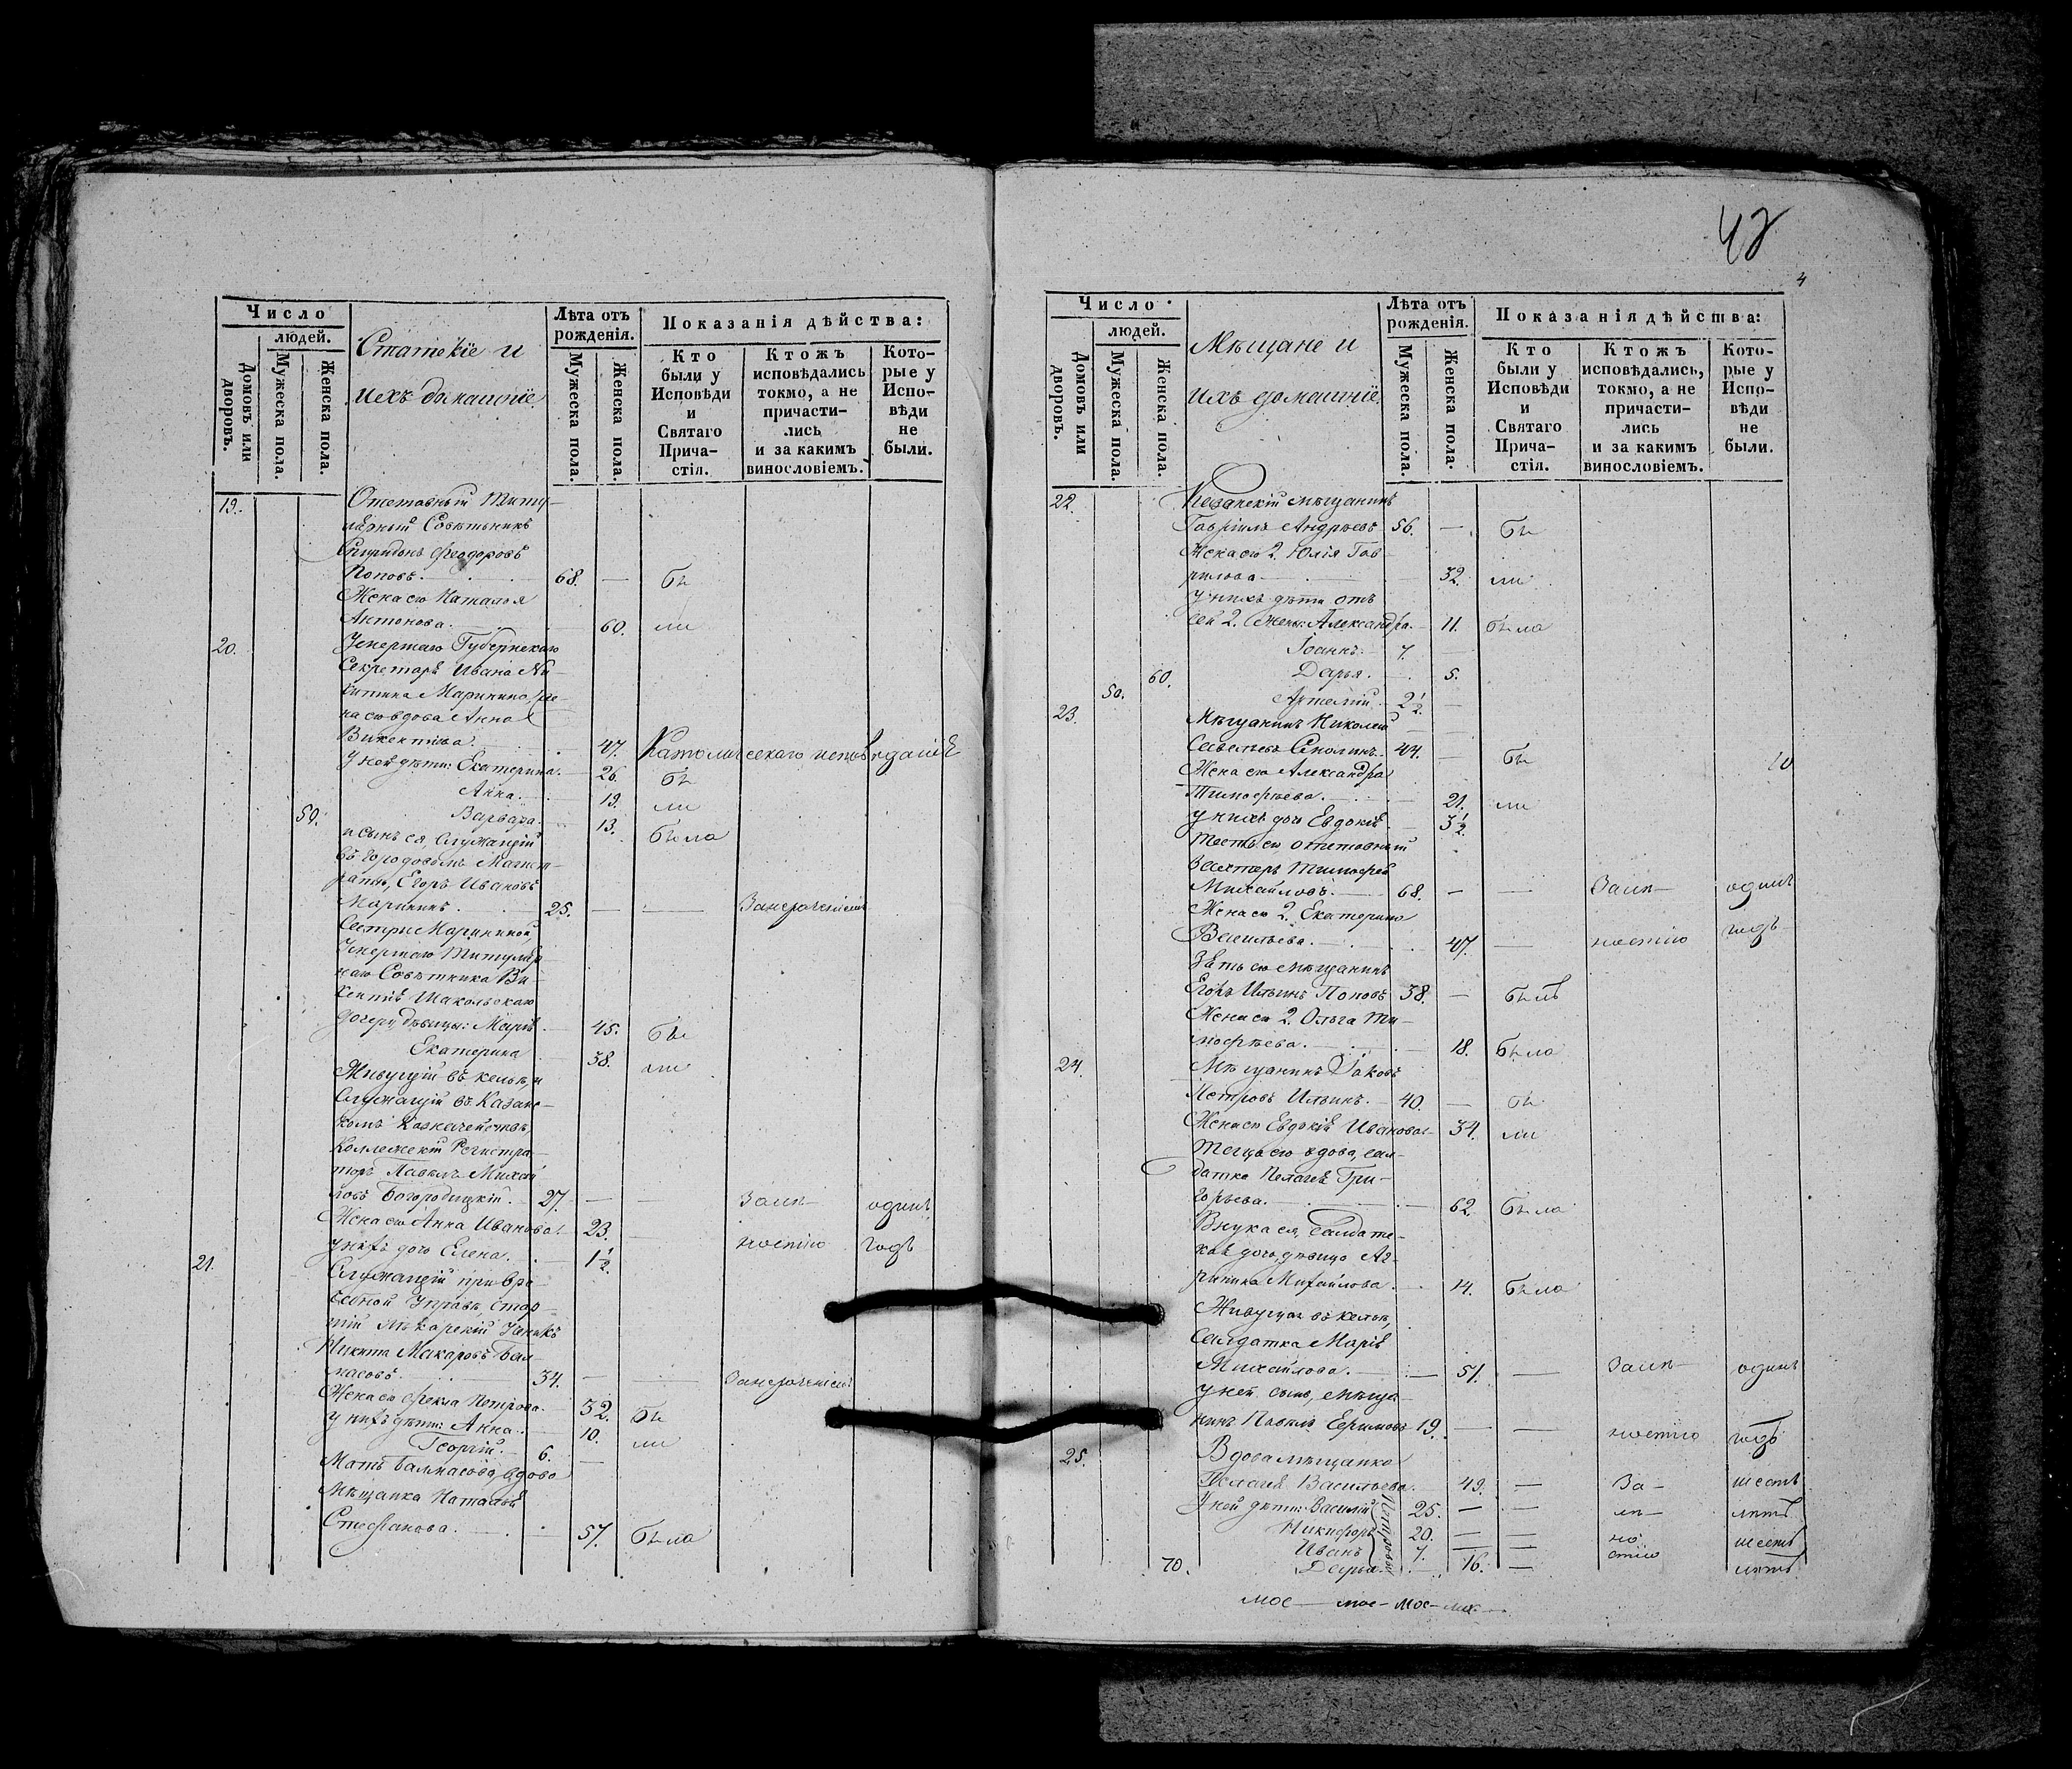 Число
людей.
Домовъ или дворовъ.
Мужеска пола.
Женска пола.
Статскіе и
ихъ домашніе.
Лѣта отъ рожденія.
Мужеска пола.
Женска пола.
Показанія дѣйства:
Кто были у Исповѣди и Святаго Прича-стія.
Ктожъ исповѣдались токмо, а не причасти-лись и за какимъ винословіемъ.
Кото-рые у Испо-вѣди не были.
19. Отставный Титу-
лярный Совѣтникъ
Спиридонъ Ѳеодоровъ
Поповъ. 68. — бы
Жена его Наталья
Антонова. 60. ли
20. Умершаго Губернскаго
Секретаря Ивана Ни-
китина Маринина, же-
на его вдова Анна
Викентіева. 47. Католическаго исповѣданія
У ней дѣти: Екатерина. — 26. бы
Анна. 19. ли
50. Варвара. 13. была
и сынъ ея, служащій
въ городовомъ Магист-
ратѣ, Егоръ Ивановъ
Марининъ. 25. — — Занерачениемъ
Сестры Марининой,
Умершаго Титуляр-
наго Совѣтника Ви-
кентія
дочери дѣвицы: Марія. 45. бы
Екатерина 38. ли
Живущій въ кельѣ, и
Служащій въ Казанс-
комъ Казначействѣ,
Коллежскій Регистра-
торъ Павелъ Михай
ловъ Богородицкій. — 27. — — Залѣ- одинъ
Жена его Анна Иванова. 23. —
у нихъ дочь Елена. 1½. ностію годъ
21. Служащій при Вра
чебной Управѣ, стар-
шій Лѣкарскій Ученикъ
Никита Макаровъ Бал-
масовъ. 34. — — Занерачениемъ
Жена его Ѳекла Петрова. 32. бы
у нихъ дѣти: Анна. 10. ли
Георгій. 6. —
Мать Балмасова, вдова
Мѣщанка Наталья
Стефанова. 57. была
42
4
Число
людей.
Домовъ или дворовъ.
Мужеска пола.
Женска пола.
Мѣщане и
ихъ домашніе.
Лѣта отъ рожденія.
Мужеска пола.
Женска пола.
Показанія дѣйства:
Кто были у Исповѣди и Святаго Прича-стія.
Ктожъ исповѣдались, токмо, а не причасти-лись и за какимъ винословіемъ.
Кото-рые у Испо-вѣди не были.
22. Казанскій мѣщанинъ
Гавріилъ Андреевъ 56. — бы
Жена его 2. Юлія Гав
рилова — 32. ли
У нихъ дѣти отъ
сей 2. Жены: Александра. 11. была
Іоаннъ. 7. —
60. Дарья. 5.
50. Артемій. 2½. —
23. Мѣщанинъ Николай
Савельевъ 44. — бы
Жена его Александра
Тимоѳеева. 21. ли
у нихъ дочь Евдокія. 3½.
Тесть его, отставный
Вахтеръ Тимоѳей
Михайловъ. 68. — — Залѣ- одинъ
Жена его 2. Екатерина
Васильева. 47. — ностію годъ
Зять его мѣщанинъ
Егоръ Ильинъ Поповъ 38. — былъ
Жена его 2. Ольга Ти-
моѳеева. 18. была
24. Мѣщанинъ Іаковъ
Петровъ Ильинъ. — 40. — бы
Жена его Евдокія Иванова. 34. ли
Теща его вдова, сол-
датка Пелагія Гри-
горьева. 62. была
Внука ея, Солдатс-
кая дочь, дѣвица Аг-
рипина Михайлова. 14. была
Живущая въ кельѣ,
Солдатка Марія
Михайлова. — 51. — Залѣ- одинъ
У ней сынъ, мѣща-
нинъ Павелъ Ефимовъ 19. — — ностію годъ
25. Вдова мѣщанка
Пелагія Васильева. 49. — За- шесть
У ней дѣти: Василій 25. — — лѣ- лѣтъ
Никифоръ 20. — — но шесть
Иванъ 7. — — стію лѣтъ
70. Дарья. 16. —
Петровы
мое — мое — мое —